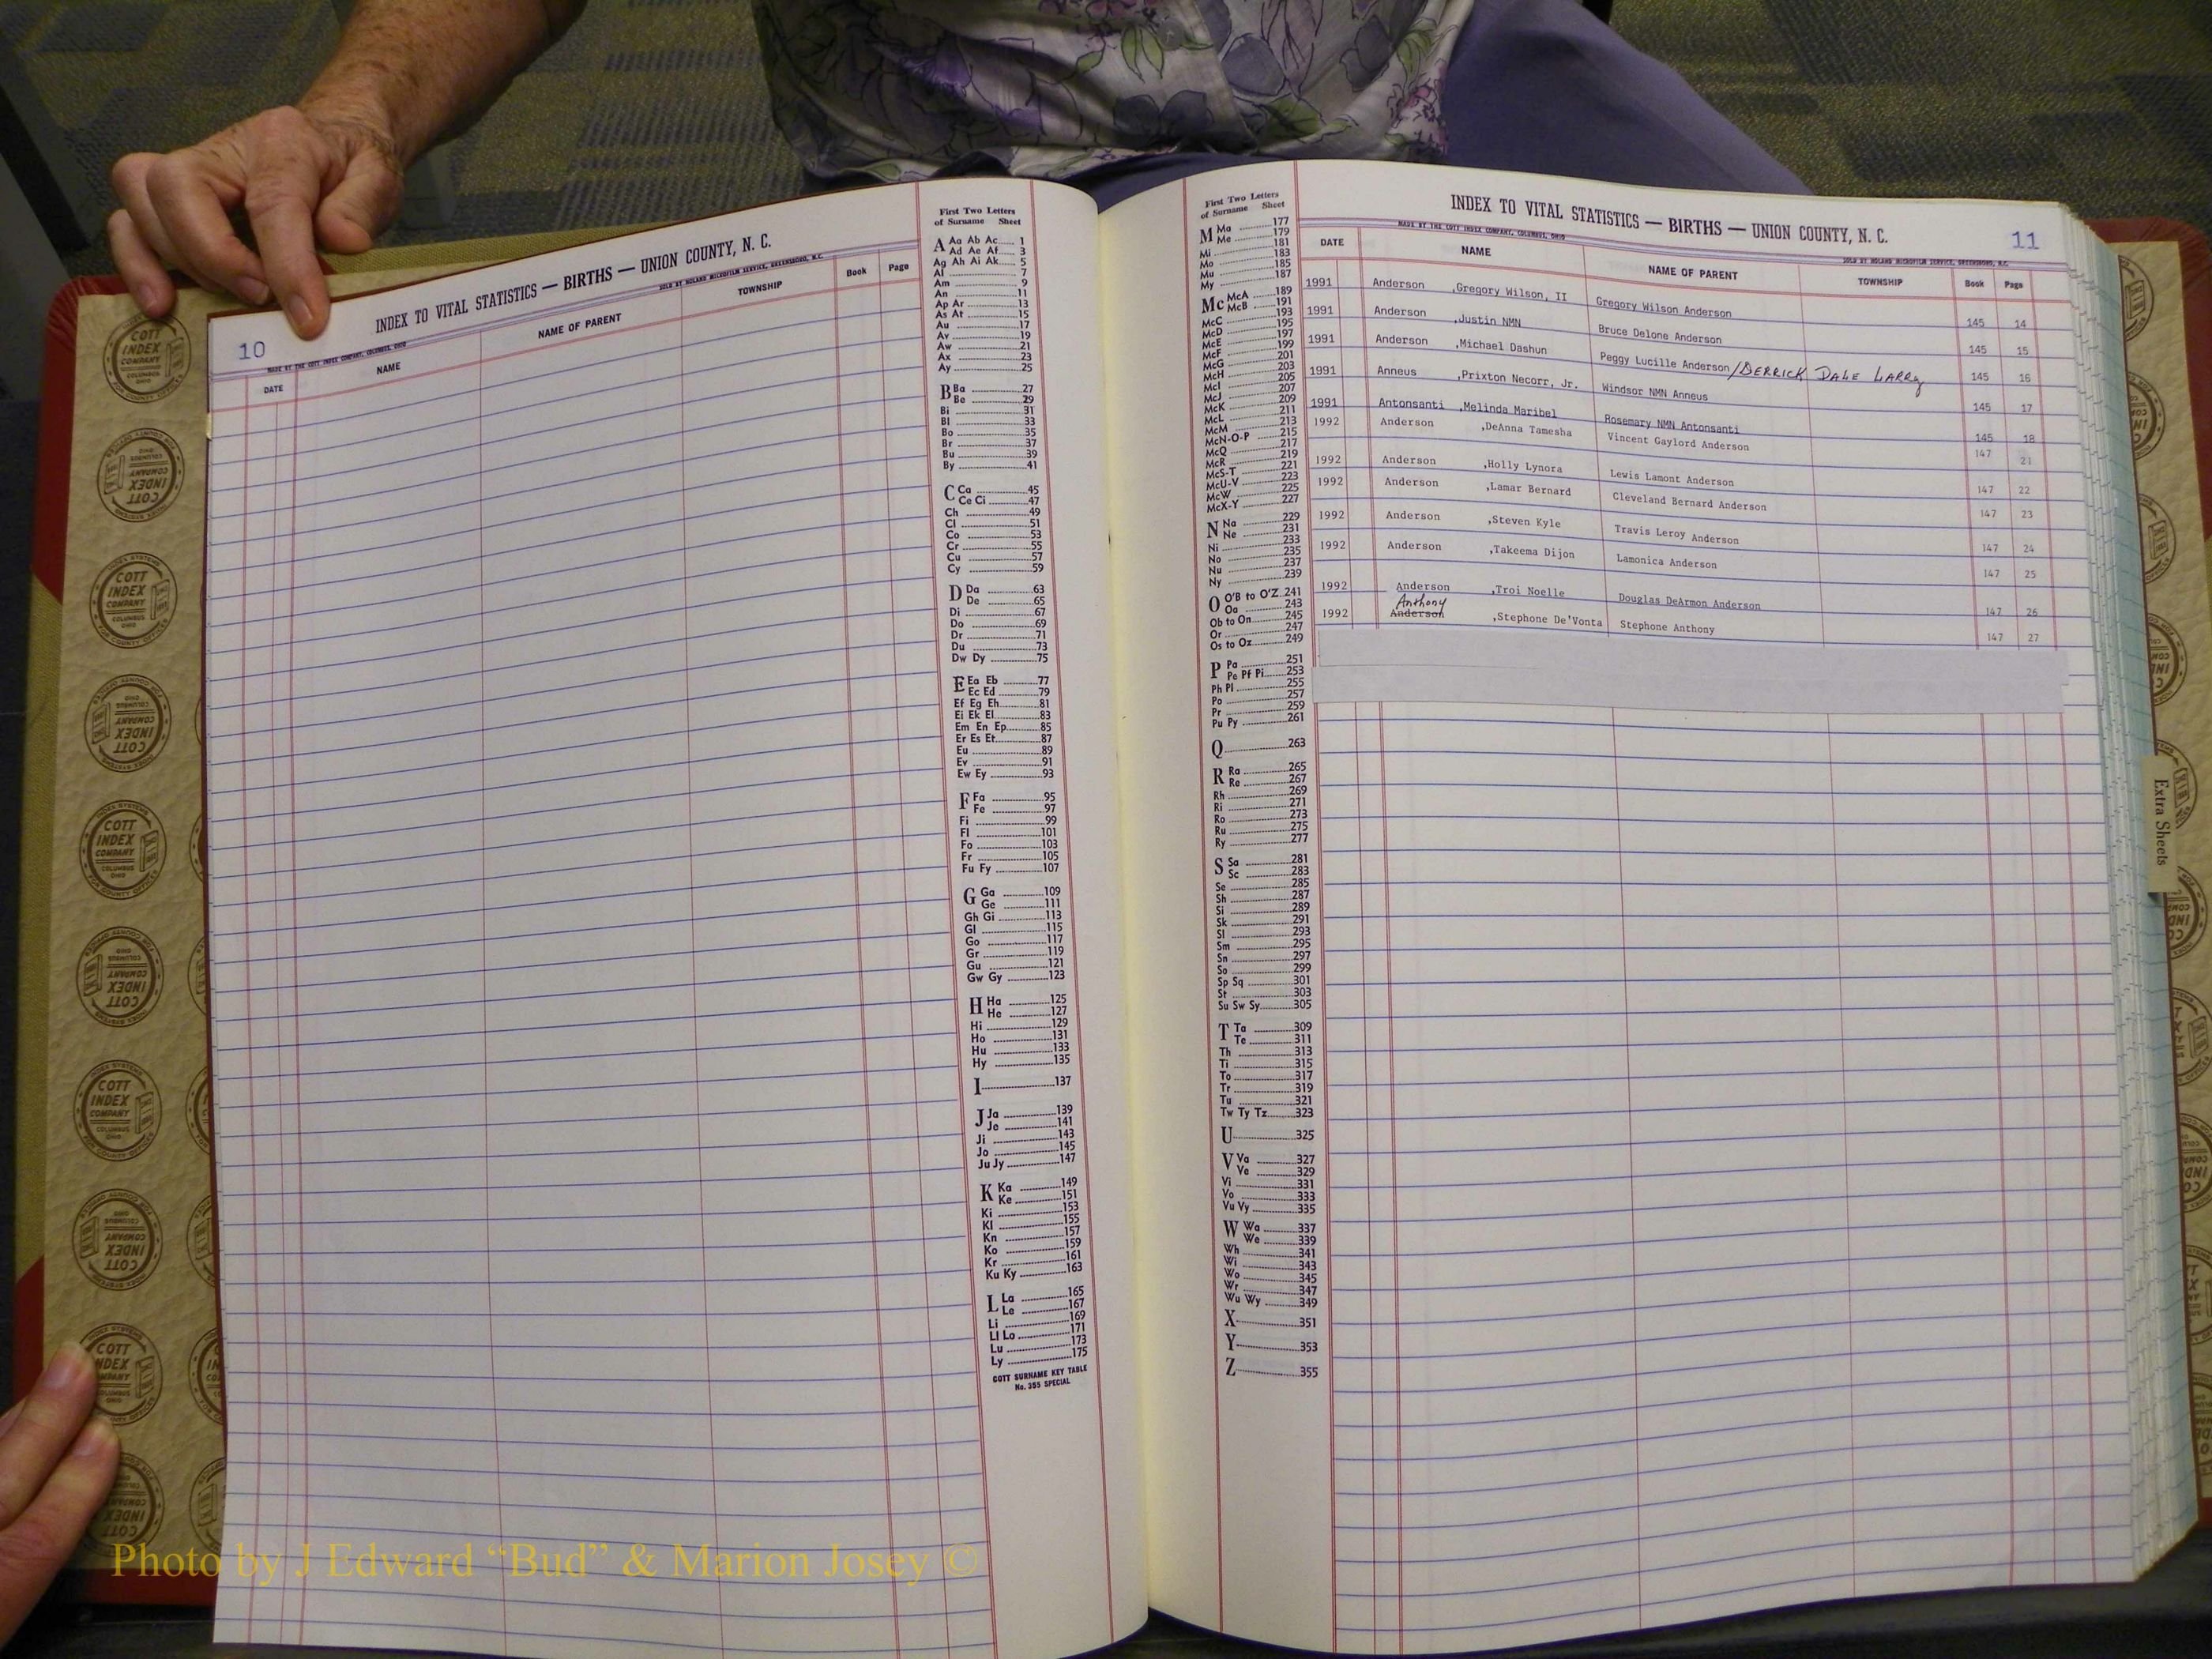 10
INDEX TO VITAL STATISTICS — BIRTHS — UNION COUNTY, N. C.
MADE BY THE COTT INDEX COMPANY, COLUMBUS, OHIO SOLD BY NOLAND MICROFILM SERVICE, GREENSBORO, N.C.
DATE NAME NAME OF PARENT TOWNSHIP Book Page
First Two Letters
of Surname Sheet
A Aa Ab Ac 1
Ad Ae Af 3
Ag Ah Ai Ak 5
Al 7
Am 9
An 11
Ap Ar 13
As At 15
Au 17
Av 19
Aw 21
Ax 23
Ay 25
B Ba 27
Be 29
Bi 31
Bl 33
Bo 35
Br 37
Bu 39
By 41
C Ca 45
Ce Ci 47
Ch 49
Cl 51
Co 53
Cr 55
Cu 57
Cy 59
D Da 63
De 65
Di 67
Do 69
Dr 71
Du 73
Dw Dy 75
E Ea Eb 77
Ec Ed 79
Ef Eg Eh 81
Ei Ek El 83
Em En Ep 85
Er Es Et 87
Eu 89
Ev 91
Ew Ey 93
F Fa 95
Fe 97
Fi 99
Fl 101
Fo 103
Fr 105
Fu Fy 107
G Ga 109
Ge 111
Gh Gi 113
Gl 115
Go 117
Gr 119
Gu 121
Gw Gy 123
H Ha 125
He 127
Hi 129
Ho 131
Hu 133
Hy 135
I 137
J Ja 139
Je 141
Ji 143
Jo 145
Ju Jy 147
K Ka 149
Ke 151
Ki 153
Kl 155
Kn 157
Ko 159
Kr 161
Ku Ky 163
L La 165
Le 167
Li 169
Ll Lo 171
Lu 173
Ly 175
COTT SURNAME KEY TABLE
No. 355 SPECIAL
First Two Letters
of Surname Sheet
M Ma 177
Me 179
Mi 181
Mo 183
Mu 185
My 187
Mc McA 189
McB 191
McC 193
McD 195
McE 197
McF 199
McG 201
McH 203
McI 205
McJ 207
McK 209
McL 211
McM 213
McN-O-P 215
McQ 217
McR 219
McS-T 221
McU-V 223
McW 225
McX-Y 227
N Na 229
Ne 231
Ni 233
No 235
Nu 237
Ny 239
O O'B to O'Z 241
Oa 243
Ob to On 245
Or 247
Os to Oz 249
P Pa 251
Pe Pf Pi 253
Ph Pl 255
Po 257
Pr 259
Pu Py 261
Q 263
R Ra 265
Re 267
Rh 269
Ri 271
Ro 273
Ru 275
Ry 277
S Sa 281
Sc 283
Se 285
Sh 287
Si 289
Sk 291
Sl 293
Sm 295
Sn 297
So 299
Sp Sq 301
St 303
Su Sw Sy 305
T Ta 309
Te 311
Th 313
Ti 315
To 317
Tr 319
Tu 321
Tw Ty Tz 323
U 325
V Va 327
Ve 329
Vi 331
Vo 333
Vu Vy 335
W Wa 337
We 339
Wh 341
Wi 343
Wo 345
Wr 347
Wu Wy 349
X 351
Y 353
Z 355
INDEX TO VITAL STATISTICS — BIRTHS — UNION COUNTY, N. C.
11
MADE BY THE COTT INDEX COMPANY, COLUMBUS, OHIO SOLD BY NOLAND MICROFILM SERVICE, GREENSBORO, N.C.
DATE NAME NAME OF PARENT TOWNSHIP Book Page
1991 Anderson ,Gregory Wilson, II Gregory Wilson Anderson 145 14
1991 Anderson ,Justin NMN Bruce Delone Anderson 145 15
1991 Anderson ,Michael Dashun Peggy Lucille Anderson/DERRICK DALE LARRY 145 16
1991 Anneus ,Prixton Necorr, Jr. Windsor NMN Anneus 145 17
1991 Antonsanti ,Melinda Maribel Rosemary NMN Antonsanti 145 18
1992 Anderson ,DeAnna Tamesha Vincent Gaylord Anderson 147 21
1992 Anderson ,Holly Lynora Lewis Lamont Anderson 147 22
1992 Anderson ,Lamar Bernard Cleveland Bernard Anderson 147 23
1992 Anderson ,Steven Kyle Travis Leroy Anderson 147 24
1992 Anderson ,Takeema Dijon Lamonica Anderson 147 25
1992 Anderson ,Troi Noelle Douglas DeArmon Anderson 147 26
Anthony
1992 Anderson ,Stephone De'Vonta Stephone Anthony 147 27
Extra Sheets
COTT INDEX COMPANY COLUMBUS OHIO
INDEX SYSTEMS FOR COUNTY OFFICES
Photo by J Edward “Bud” & Marion Josey ©